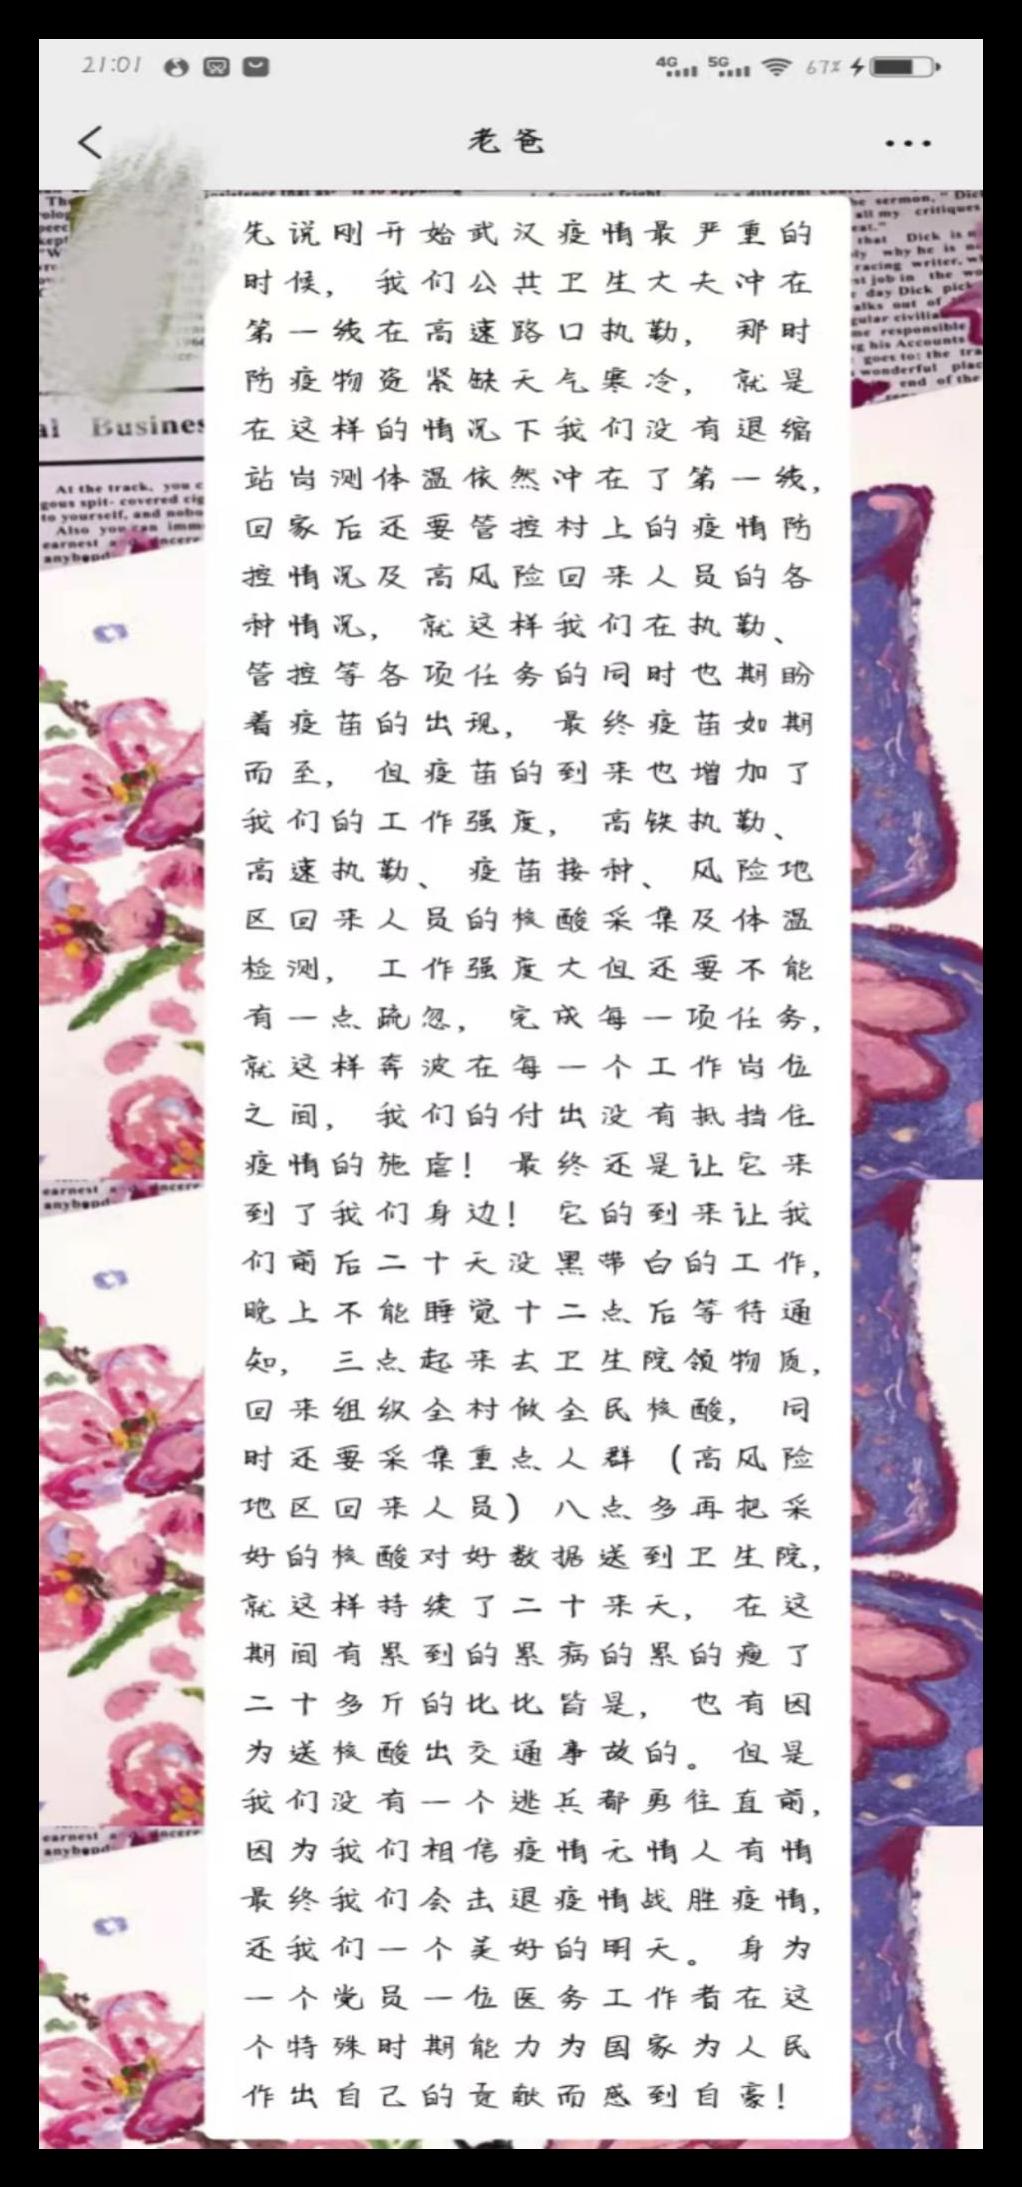 21:01
4G 5G 67%
老爸
先说刚开始武汉疫情最严重的
时候，我们公共卫生大夫冲在
第一线在高速路口执勤，那时
防疫物资紧缺天气寒冷，就是
在这样的情况下我们没有退缩
站岗测体温依然冲在了第一线，
回家后还要管控村上的疫情防
控情况及高风险回来人员的各
种情况，就这样我们在执勤、
管控等各项任务的同时也期盼
着疫苗的出现，最终疫苗如期
而至，但疫苗的到来也增加了
我们的工作强度，高铁执勤、
高速执勤、疫苗接种、风险地
区回来人员的核酸采集及体温
检测，工作强度大但还要不能
有一点疏忽，完成每一项任务，
就这样奔波在每一个工作岗位
之间，我们的付出没有抵挡住
疫情的施虐！最终还是让它来
到了我们身边！它的到来让我
们前后二十天没黑带白的工作，
晚上不能睡觉十二点后等待通
知，三点起来去卫生院领物质，
回来组织全村做全民核酸，同
时还要采集重点人群（高风险
地区回来人员）八点多再把采
好的核酸对好数据送到卫生院，
就这样持续了二十来天，在这
期间有累到的累病的累的瘦了
二十多斤的比比皆是，也有因
为送核酸出交通事故的。但是
我们没有一个逃兵都勇往直前，
因为我们相信疫情无情人有情
最终我们会击退疫情战胜疫情，
还我们一个美好的明天。身为
一个党员一位医务工作者在这
个特殊时期能力为国家为人民
作出自己的贡献而感到自豪！
al Busines
At the track, you c
gous spit- covered cig
to yourself, and nobo
Also you can imm
earnest and sincere
anybond
be sermon," Dic
all my critiques
eat."
that Dick is n
ly why he is no
racing writer, w
st job in the wo
day Dick pick
alks out of
gular civilia
me responsible
g his Accounts
goes to: the tra
wonderful plac
end of the
earnest and sincere
anybond
earnest and sincere
anybond